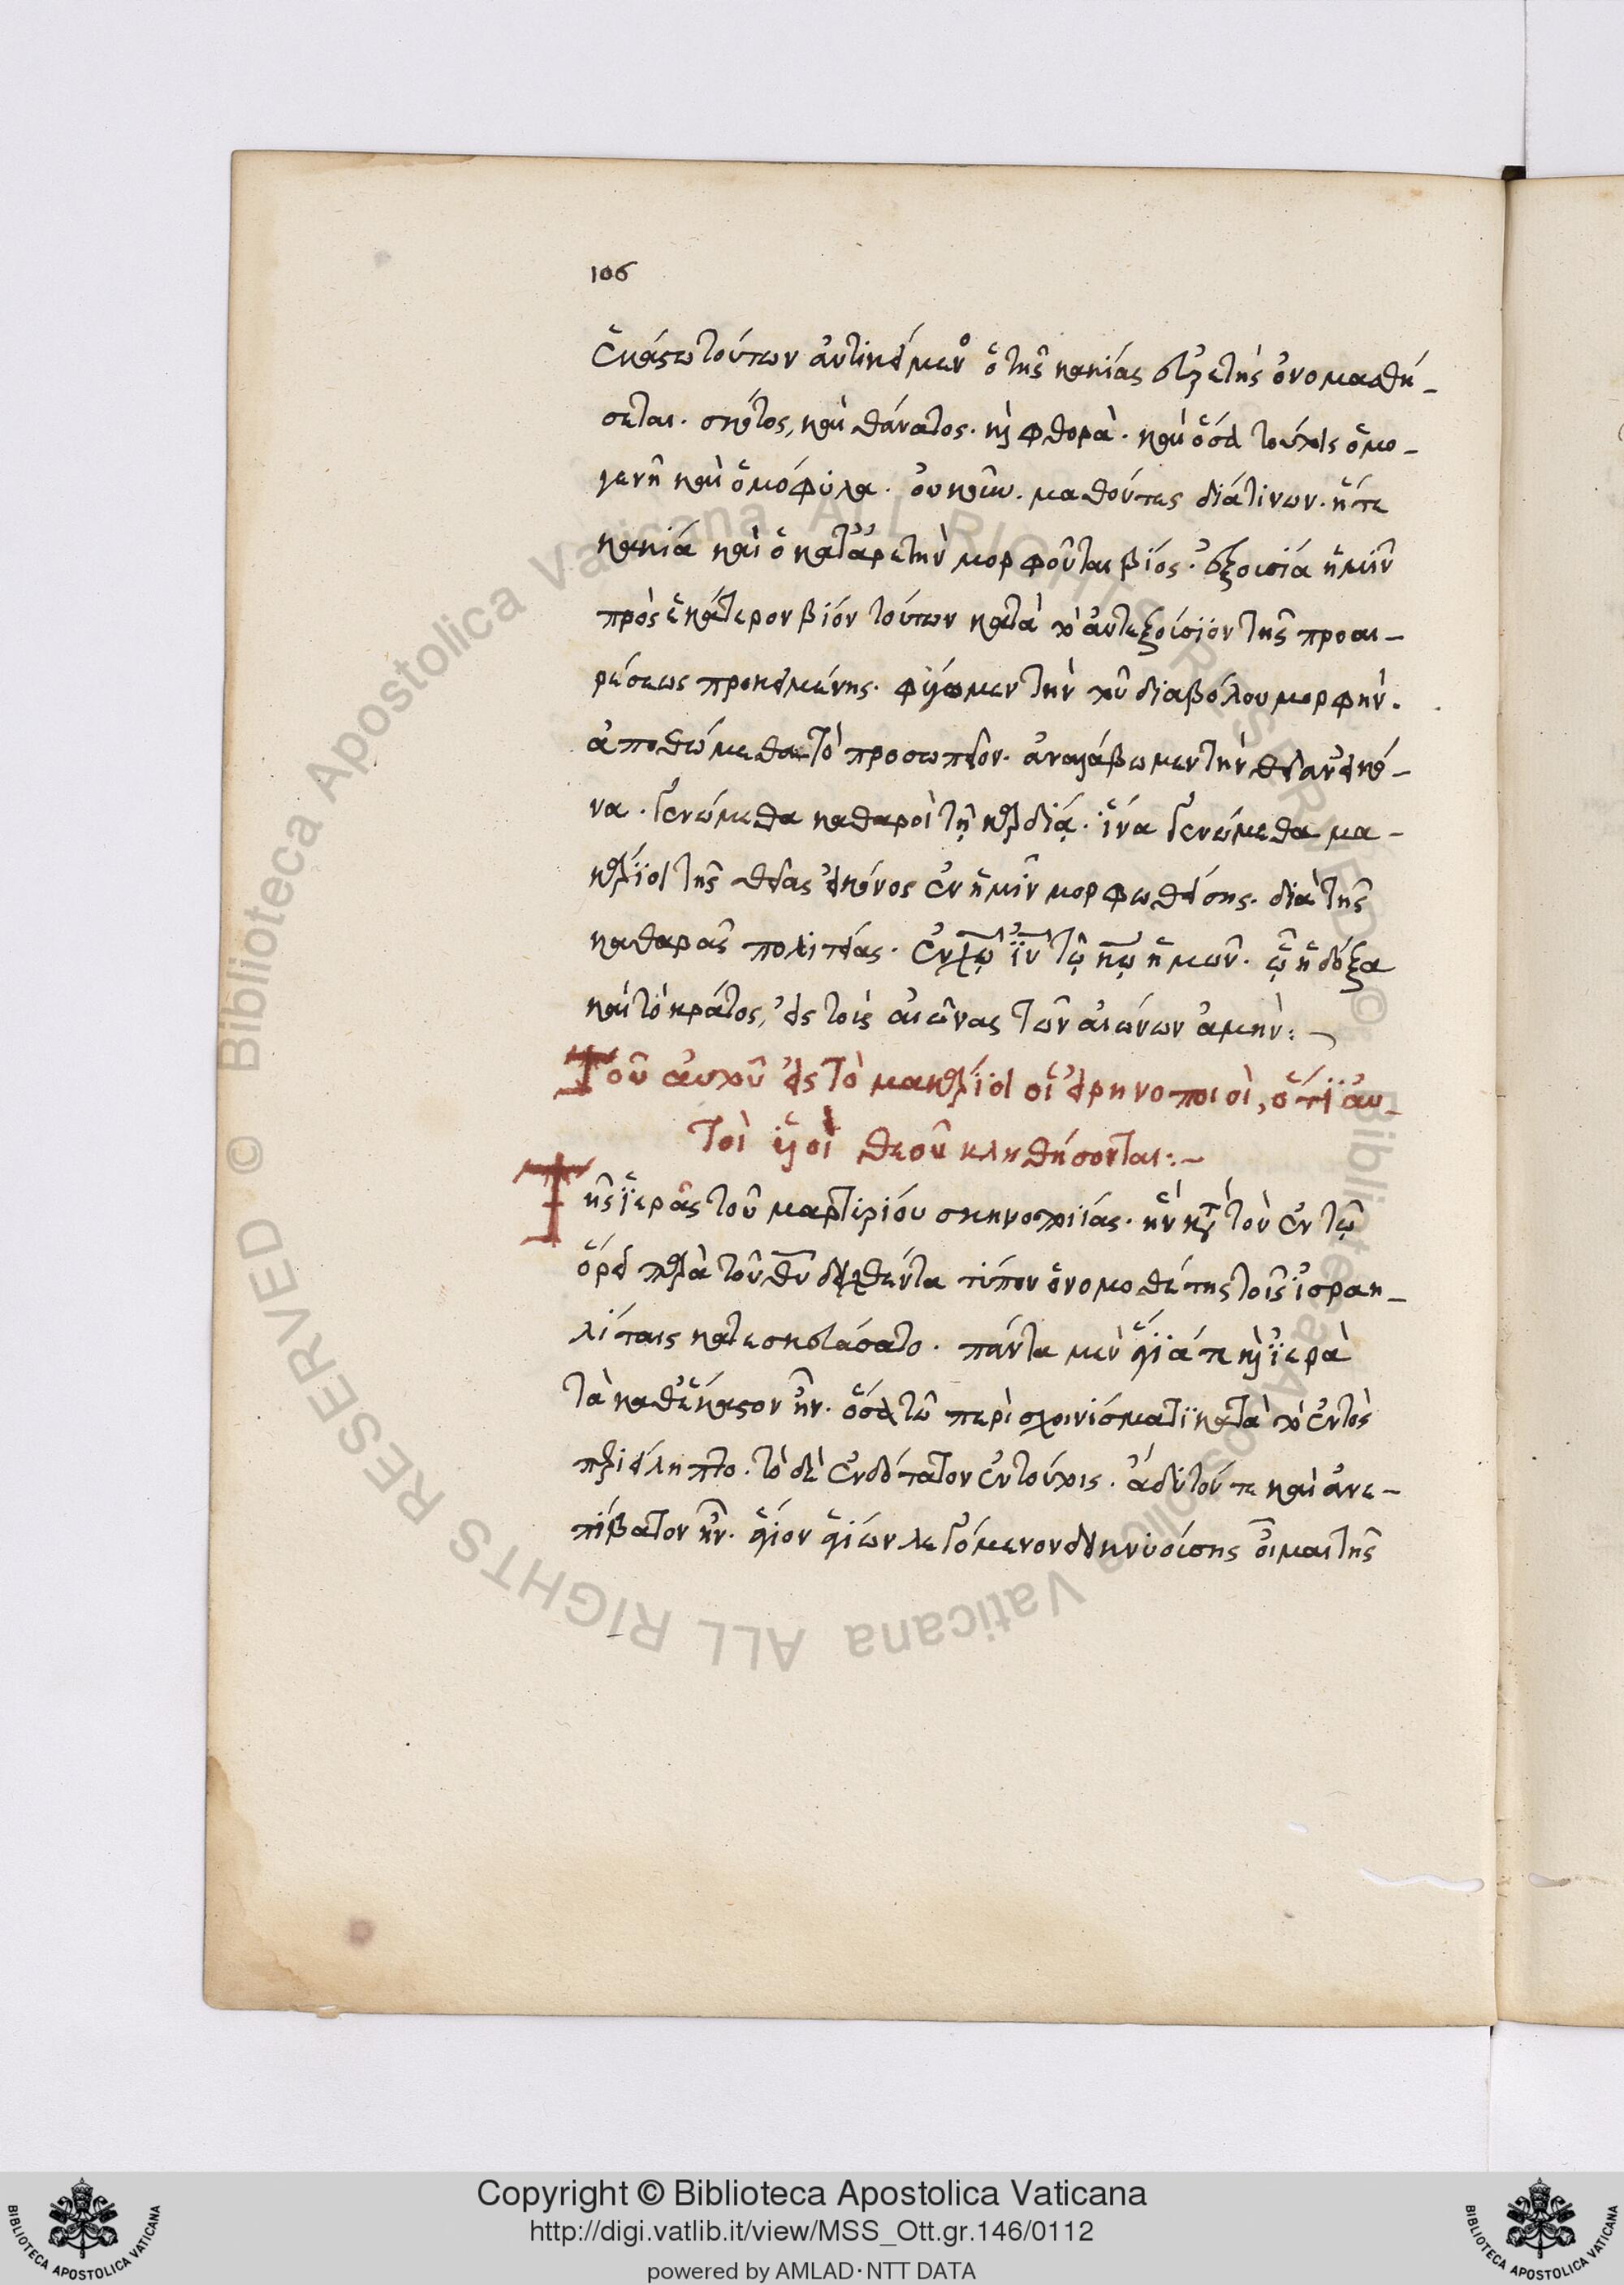 106
ἑκάστω τούτων ἀντικείμενος ὁ τῆς κακίας εὑρετὴς ὀνομασθή-
σεται. σκότος, καὶ θάνατος. καὶ φθορὰ. καὶ ὅσα τούτοις ὁμο-
γενῆ καὶ ὁμόφυλα. οὐκοῦν. μαθόντες διάτινων. ἥτε
κακία καὶ ὁ κατ' ἀρετὴν μορφοῦται βίος. ἐξουσία ἡμῖν
πρὸς ἑκάτερον βίον τούτων κατὰ τὸ αὐτεξούσιον τῆς προαι-
ρέσεως προκειμένης. φύγωμεν τὴν τοῦ διαβόλου μορφὴν.
ἀποθώμεθα τὸ προσωπεῖον. ἀναλάβωμεν τὴν θείαν εἰκό-
να. γενώμεθα καθαροὶ τῇ καρδίᾳ. ἵνα γενώμεθα μα-
κάριοι τῆς θείας εἰκόνος ἐν ἡμῖν μορφωθείσης. διὰ τῆς
καθαρᾶς πολιτείας. ἐν χω ιυ τῷ κω ἡμῶν. ᾧ ἡ δόξα
καὶ τὸ κράτος, εἰς τοὺς αἰῶνας τῶν αἰώνων ἀμὴν:~
Τοῦ αὐτοῦ εἰς τὸ μακάριοι οἱ εἰρηνοποιοὶ, ὅτι αὐ-
τοὶ υἱοὶ θεοῦ κληθήσονται:~
Τῆς ἱερᾶς τοῦ μαρτυρίου σκηνοποιίας. ἣν κατὰ τὸν ἐν τῷ
ὄρει παρὰ τοῦ θυ δειχθέντα τύπον ὁ νομοθέτης τοῖς ἰσραη-
λίταις κατεσκευάσατο. πάντα μὲν ἅγιά τε καὶ ἱερὰ
τὰ καθ' ἕκαστον ἦν. ὅσα τῶ περὶ σχοινίσματι κατὰ τὸ ἐντὸς
περιείληπτο. τὸ δὲ ἐνδότατον ἐν τούτοις. ἄδυτόν τε καὶ ἀνε-
πίβατον ἦν. ἅγιον ἁγίων λεγόμενον ἐνδεικνυούσης οἶμαι τῆς
Copyright © Biblioteca Apostolica Vaticana
http://digi.vatlib.it/view/MSS_Ott.gr.146/0112
powered by AMLAD·NTT DATA